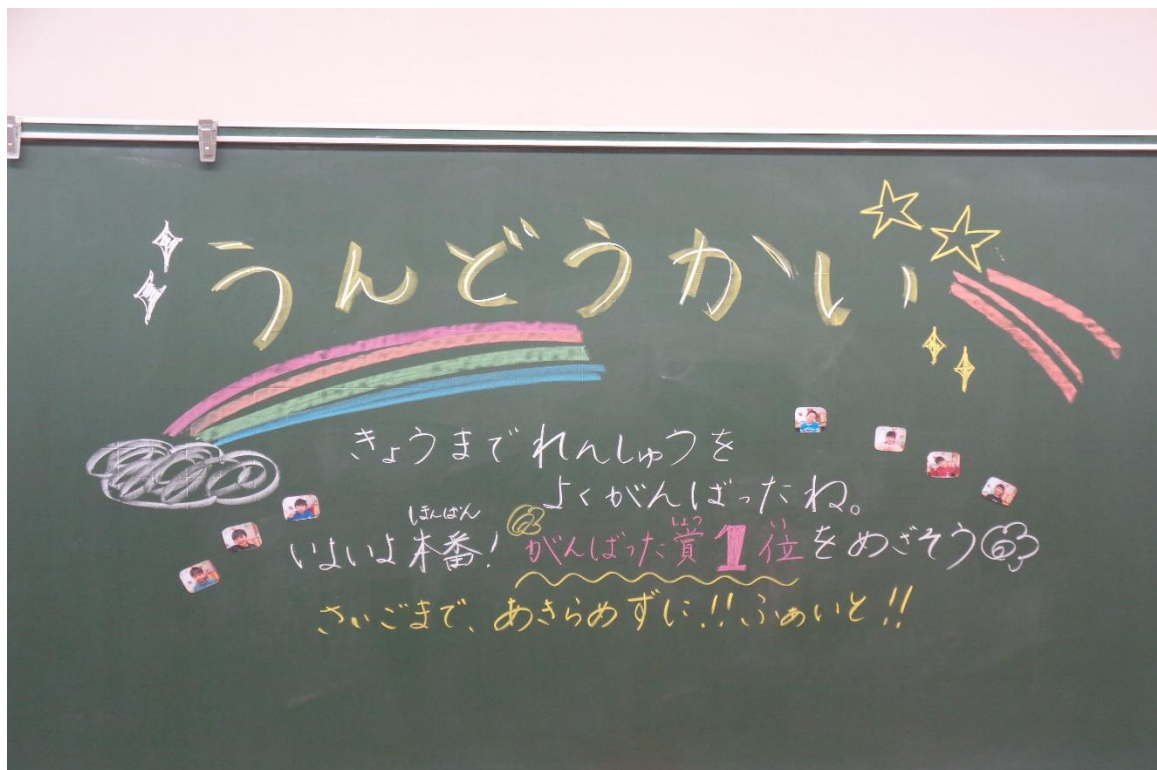 うんどうかい
きょうまでれんしゅうを
よくがんばったね。
ほんばん しょう い
いよいよ本番!がんばった賞1位をめざそう
さいごまで、あきらめずに!!ふぁいと!!